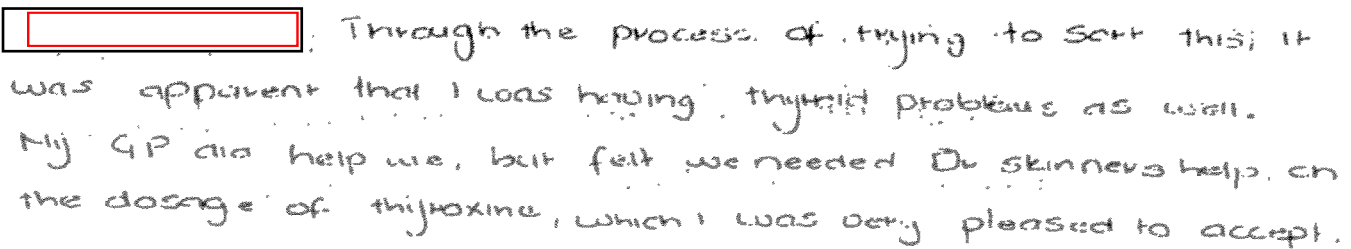 Through the process of trying to sort this, it
was apparent that I was having thyroid problems as well.
My GP did help me, but felt we needed Dr Skinners help on
the dosage of thyroxine, which I was very pleased to accept.